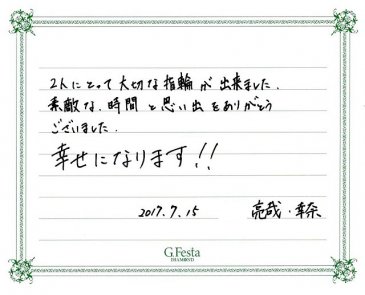 2人にとって大切な指輪が出来ました.
素敵な、時間と思い出をありがとう
ございました.
幸せになります!!
2017.7.15 亮哉・幸奈
G.Festa
DIAMOND